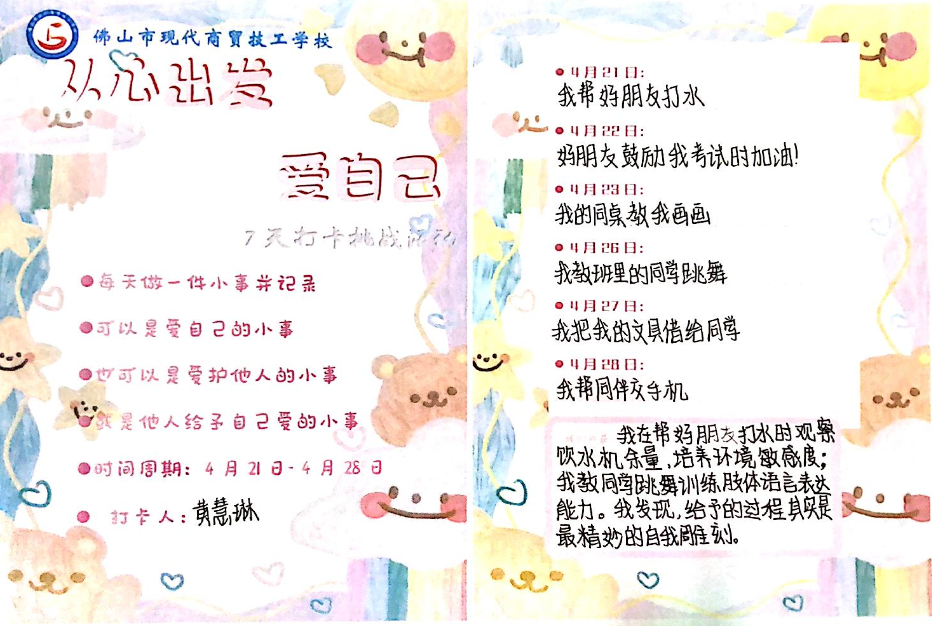 佛山市现代商贸技工学校
从心出发
爱自己
7天打卡挑战活动
每天做一件小事并记录
可以是爱自己的小事
也可以是爱护他人的小事
或是他人给予自己爱的小事
时间周期：4月21日-4月28日
打卡人：黄慧琳
4月21日：
我帮好朋友打水
4月22日：
好朋友鼓励我考试时加油！
4月23日：
我的同桌教我画画
4月26日：
我教班里的同学跳舞
4月27日：
我把我的文具借给同学
4月28日：
我帮同伴交手机
我在帮好朋友打水时观察
饮水机余量，培养环境敏感度；
我教同学跳舞训练肢体语言表达
能力。我发现，给予的过程其实是
最精妙的自我雕刻。